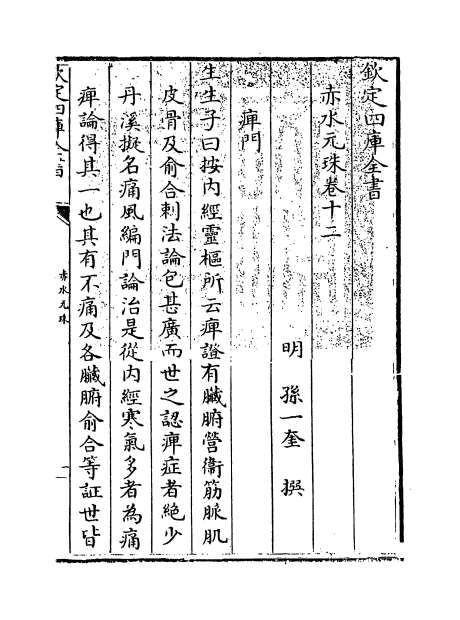 欽定四庫全書
赤水元珠卷十二
明 孫一奎 撰
痺門
生生子曰按内經靈樞所云痺證有臟腑營衞筋脈肌
皮骨及俞合刺法論包甚廣而世之認痺症者絶少
丹溪擬名痛風編門論治是從内經寒氣多者為痛
痺論得其一也其有不痛及各臟腑俞合等証世皆
赤水元珠
一